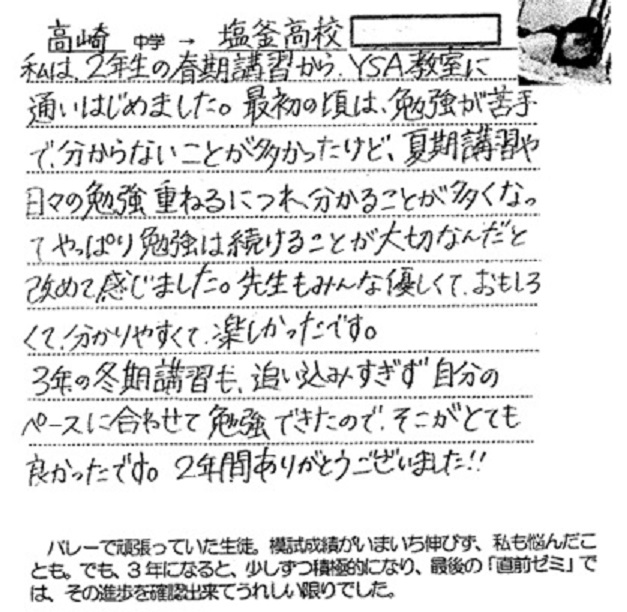 高崎 中学 → 塩釜高校
私は、2年生の春期講習から、YSA教室に
通いはじめました。最初の頃は、勉強が苦手
で、分からないことが多かったけど、夏期講習や
日々の勉強重ねるにつれ、分かることが多くなっ
てやっぱり勉強は続けることが大切なんだと
改めて感じました。先生もみんな優しくて、おもしろ
くて、分かりやすくて、楽しかったです。
3年の冬期講習も、追い込みすぎず自分の
ペースに合わせて勉強できたので、そこがとても
良かったです。2年間ありがとうございました!!
バレーで頑張っていた生徒。模試成績がいまいち伸びず、私も悩んだこ
とも。でも、3年になると、少しずつ積極的になり、最後の「直前ゼミ」で
は、その進歩を確認出来てうれしい限りでした。